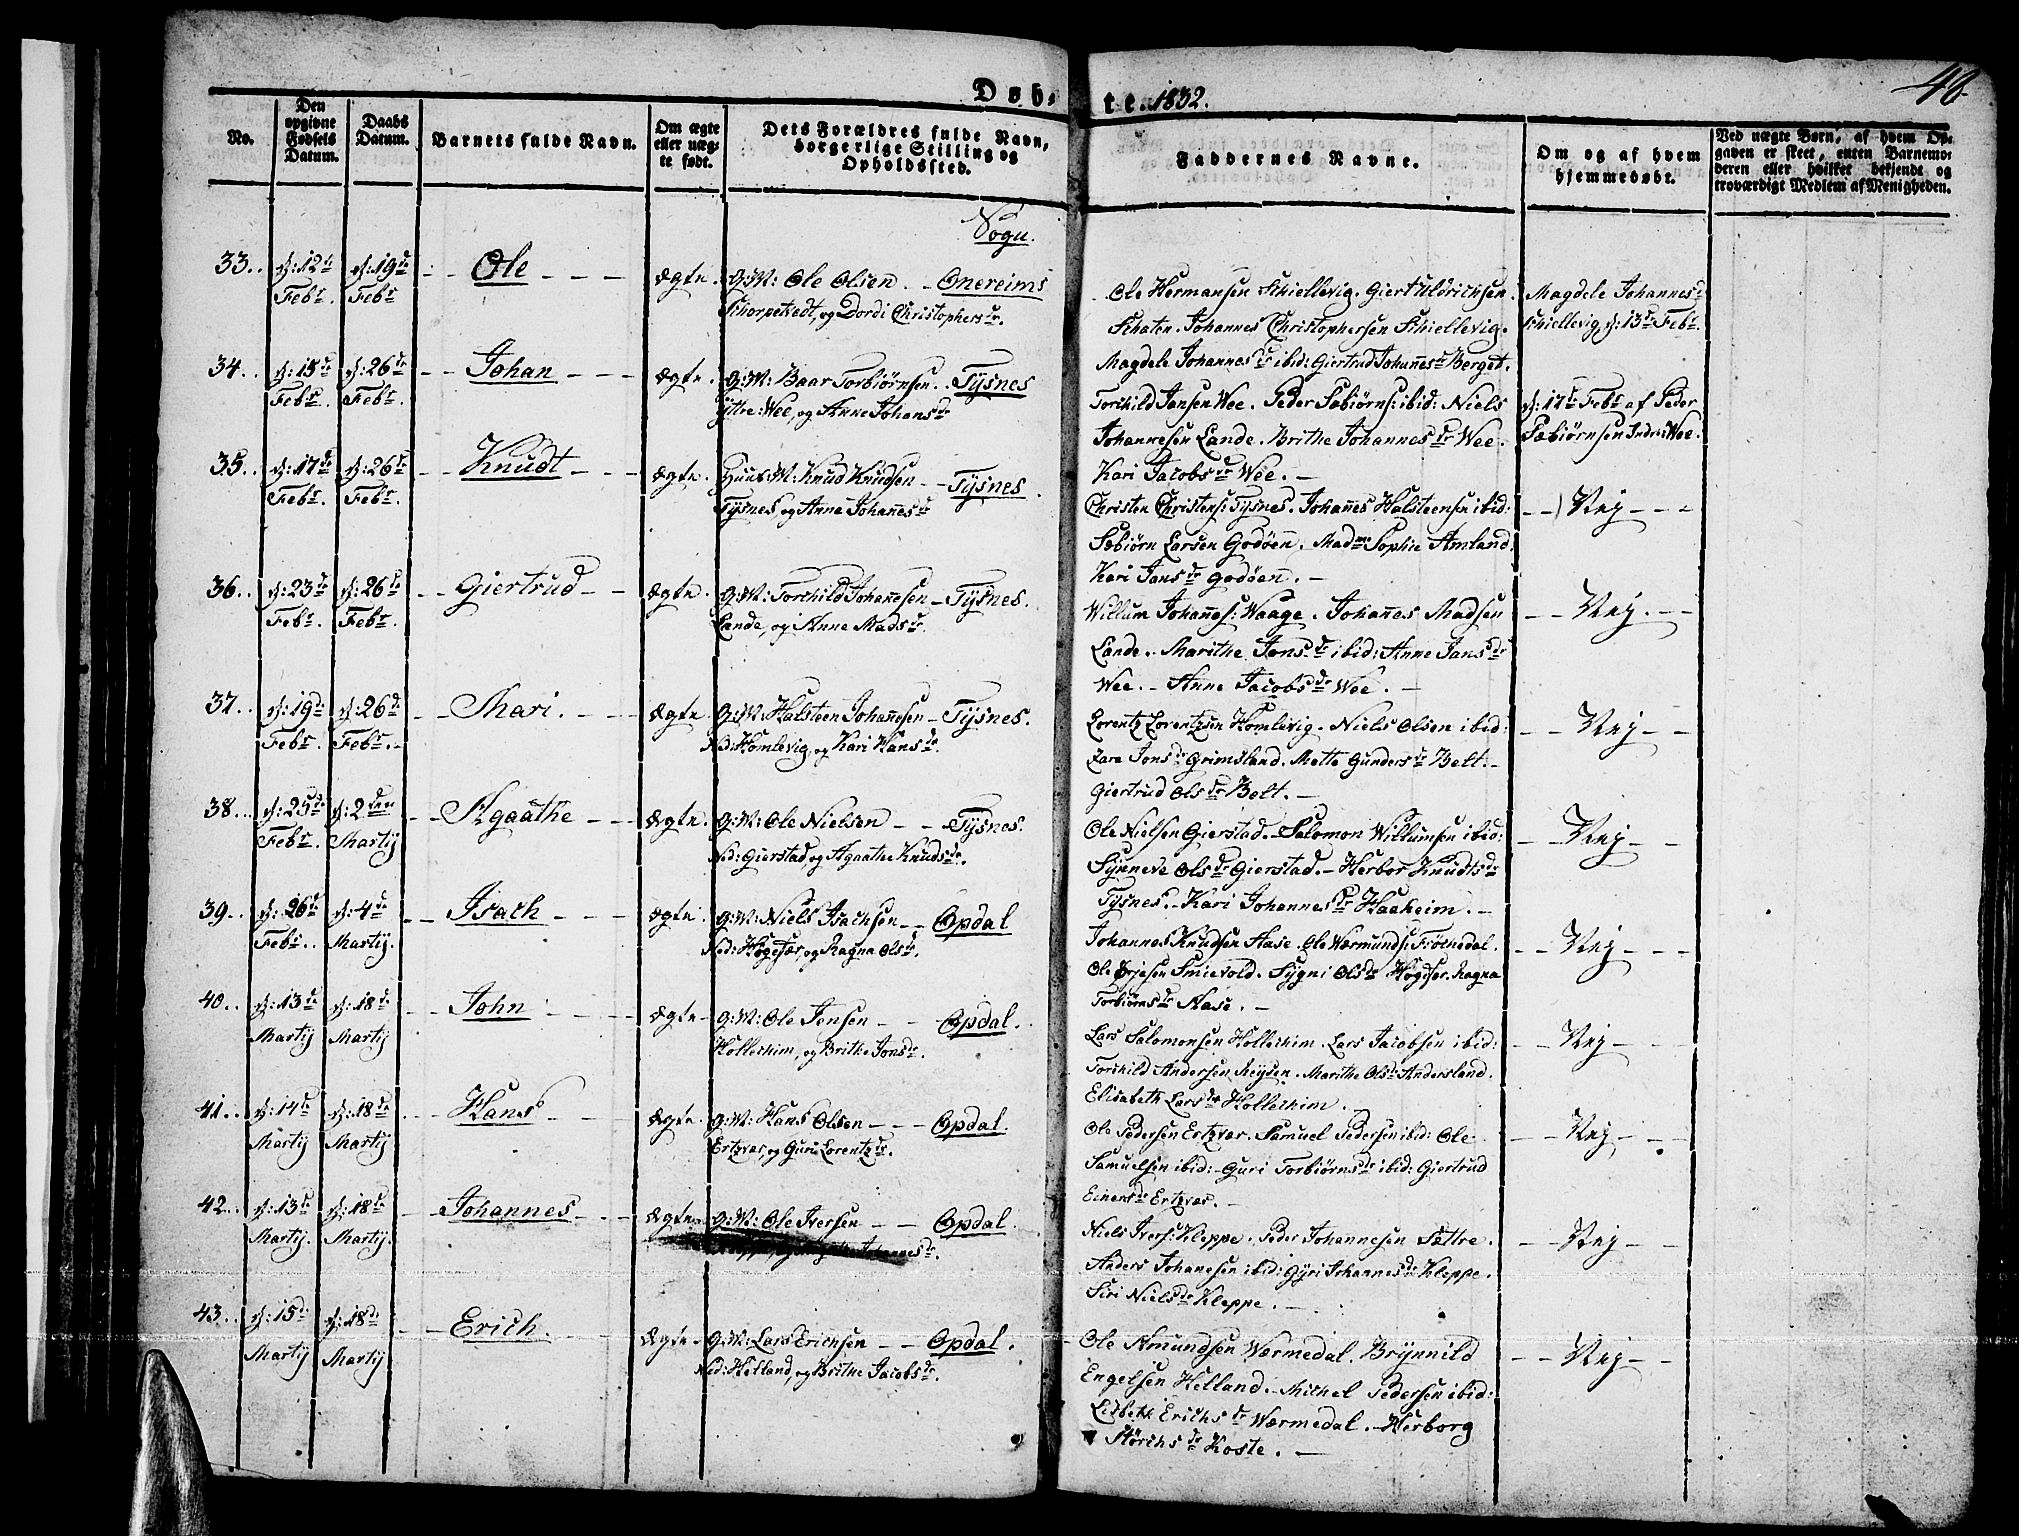 Døb-te. 1832.
40.
No.
Den opgivne Fødsels Datum.
Daabs Datum.
Barnets fulde Navn.
Om ægte eller uægte født.
Dets Forældres fulde Navn, borgerlige Stilling og Opholdssted.
Faddernes Navne.
Om og af hvem hjemmedøbt.
Ved uægte Børn, af hvem Opgaven er skeet, enten Barnemoderen eller hvilket bekjendt og troværdigt Medlem af Menigheden.
Sogn.
33. d: 12te Febr. d: 19de Febr Ole ægte. G:M: Ole Olsen Onereims
Skorpetvedt, og Dordi Christophersdr.
Ole Hermansen Skiellevig. Giert Uldrichsen
Skaten. Johannes Christophersen Skiellevig.
Magdele Johannesdr ibid: Giertrud Johannesdr Berget.
Magdele Johannesdr
Skiellevig, d: 13de Febr.
34. d: 15de Febr. d: 26de Febr. Johan ægte. G:M: Baar Torbiørnsen Tysnes
Yttre: Wee, og Anne Johansdr
Torchild Jansen Wee. Peder Sæbiørns: ibid: Niels
Johannesen Lande. Brithe Johannesdr Wee.
Kari Jacobsdr Wee.
d: 17de Febr af Peder
Sæbiørnsen Indre: Wee.
35. d: 17de Febr d: 26de Febr. Knudt ægte. Huus:M: Knud Knudsen Tysnes.
Tysnes, og Anne Johannesdr
Christen Christens: Tysnes. Johannes Halsteensen ibid:
Sæbiørn Larsen Godøen. Madme Sophie Amland.
Kari Jansdr Godøen.
Nej
36. d: 23de Febr. d: 26de Febr. Giertrud ægte. G:M: Torchild Johannesen Tysnes.
Lande, og Anne Madsdr.
Willum Johannes: Waage. Johannes Madsen
Lande. Marithe Jonsdr ibid: Anne Jansdr
Wee. Anne Jacobsdr Wee.
Nej.
37. d: 19de Febr. d: 26de Febr. Mari. ægte. G:M: Halsteen Johannesen Tysnes.
Ned: Homlevig, og Kari Hansdr.
Lorentz Lorentzsen Homlevig. Niels Olsen ibid:
Zara Jonsdr Grimsland. Mette Gundersdr Belt.
Giertrud Olsdr Belt.
Nej
38. d: 25de Febr. d: 2den Martij Agaathe ægte. G:M: Ole Nielsen Tysnes.
Ned: Gierstad, og Agaathe Knudsdr.
Ole Nielsen Gierstad. Salomon Willumsen ibid:
Synneve Olsdr Gierstad. Herbor Knudtsdr
Tysnes. Kari Johannesdr Haaheim.
Nej
39. d: 26de Febr. d: 4de Martij. Isach ægte. G:M: Niels Isachsen Opdal
Ned: Høgesær, og Ragna Olsdr.
Johannes Knudsen Aase. Ole Wærmunds: Frøchedal.
Ole Smievold. Sygni Olsdr Høgeser. Ragna
Torbiørnsdr Aase.
Nej
40. d: 13de Martij d: 18de Martij John ægte G:M: Ole Jensen Opdal.
Hollechim, og Brithe Jonsdr.
Lars Salomonsen Hollechim. Lars Jacobsen ibid:
Torchild Andersen Reysen. Marithe Olsdr Andersland.
Elisabeth Larsdr Hollechim.
Nej
41. d: 14de Martij d: 18de Martij Hans ægte. G:M: Hans Olsen Opdal.
Ertzvær, og Guri Lorentzdr.
Ole Pedersen Ertzvær. Samuel Pedersen ibid: Ole
Samuelsen ibid: Guri Torbiørnsdr ibid: Giertrud
Einersdr Ertzvær.
Nej
42. d: 13de Martij. d: 18de Martij. Johannes ægte G:M: Ole Iversen Opdal
Johannesdr.
Niels Ivers: Kleppe. Peder Johannesen Sættre.
Anders Johanesen ibid: Gyri Johannesdr Kleppe.
Siri Nielsdr Kleppe.
Nej
43. d: 15de Martij d: 18de Martij Erich. ægte G:M: Lars Erichsen Opdal.
Ned: Helland, og Brithe Jacobsdr.
Ole Amundsen Wærmedal. Brynnild
Engelsen Helland. Michel Pedersen ibid:
Lisbeth Erichsdr Wærmedal. Herborg
Størchsdr Koste.
Nej